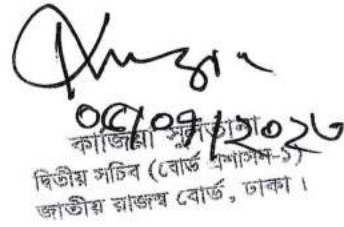 ০৫/০৭/২০২৩
সুলতানা
দ্বিতীয় সচিব (বোর্ড প্রশাসন-১)
জাতীয় রাজস্ব বোর্ড, ঢাকা ।